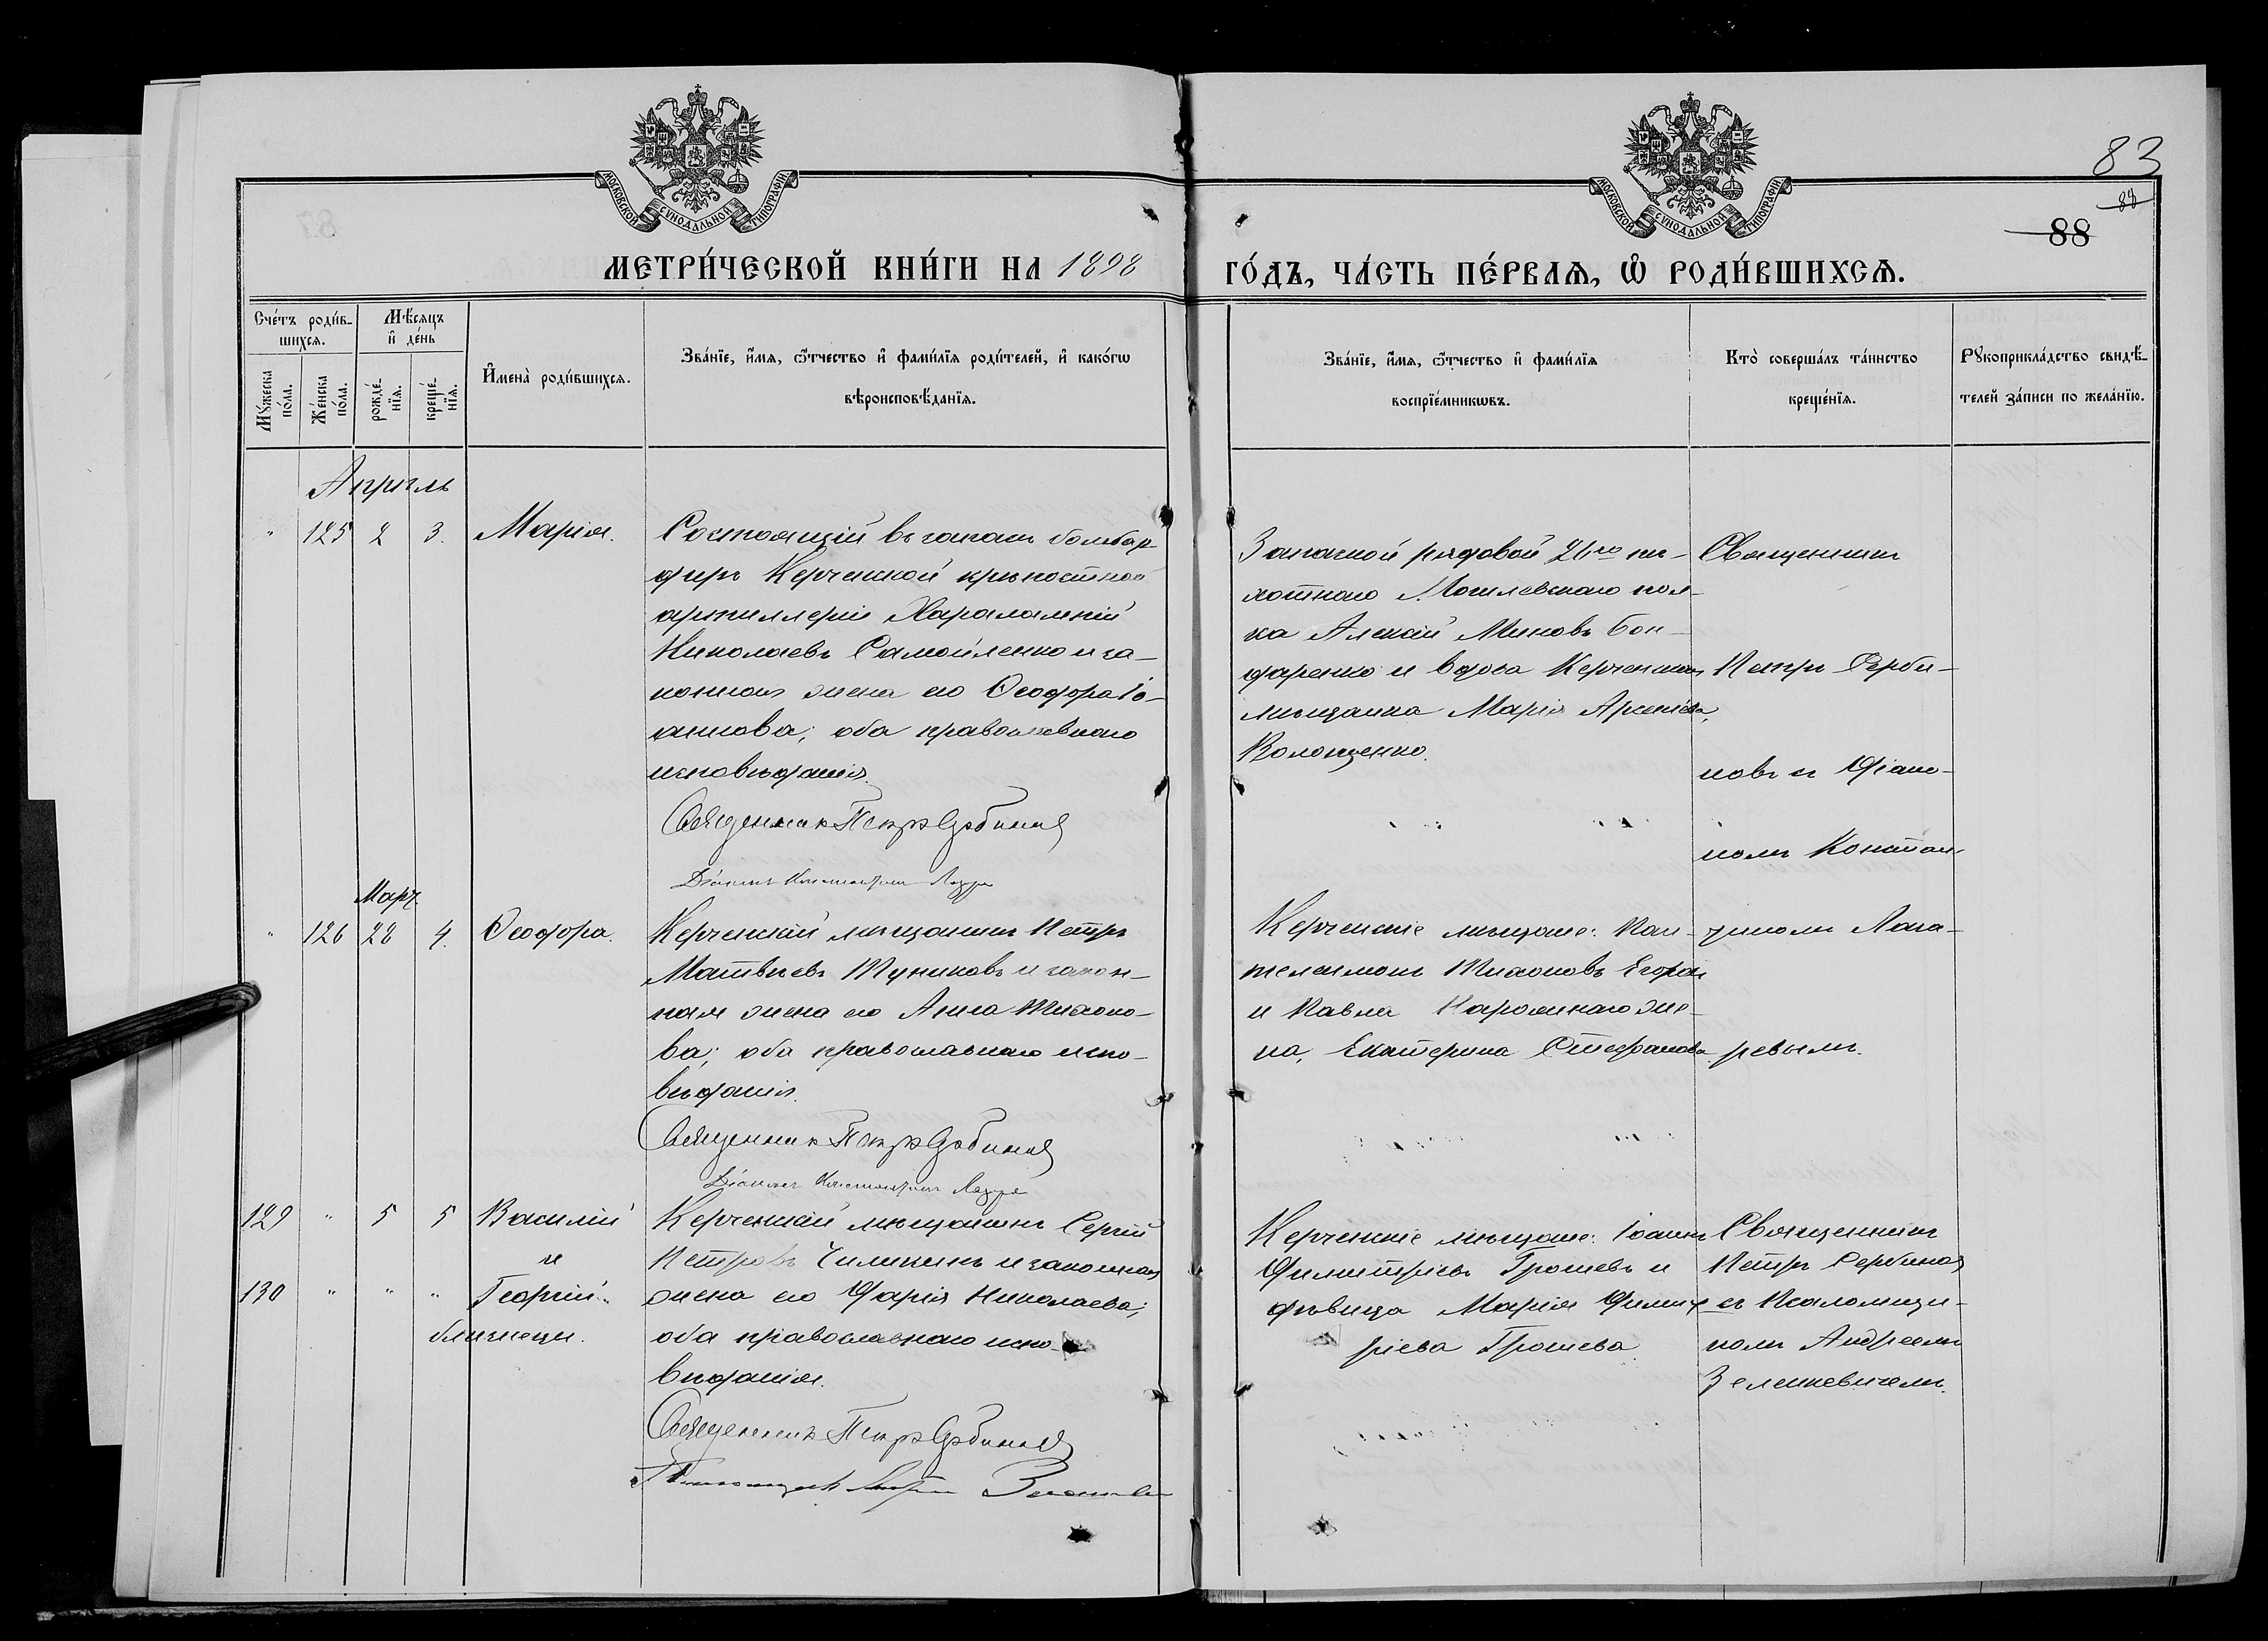 83
88
88
МОСКОВСКОЙ СѴНОДАЛЬНОЙ ТИПОГРАФІИ
МОСКОВСКОЙ СѴНОДАЛЬНОЙ ТИПОГРАФІИ
МЕТРИ́ЧЕСКОЙ КНИ́ГИ НА 1898
ГО́ДЪ, ЧА́СТЬ ПЕ́РВАѦ, Ѡ҆ РОДИ́ВШИХСѦ.
Сче́тъ роди́в-
шихсѧ.
Мѣ́сѧцъ
и҆ де́нь
Мꙋ́жеска
по́ла.
Же́нска
по́ла.
рожде́-
нїѧ.
креще́-
нїѧ.
И҆мена̀ роди́вшихсѧ.
Зва́нїе, и҆́мѧ, ѻ҆́тчество и҆ фами́лїѧ роди́телей, и҆ како́гѡ
вѣроисповѣ́данїѧ.
Зва́нїе, и҆́мѧ, ѻ҆́тчество и҆ фами́лїѧ
воспрїе́мникѡвъ.
Кто̀ соверша́лъ та́инство
креще́нїѧ.
Рꙋкоприкла́дство свидѣ́-
телей за́писи по жела́нїю.
Апрѣль
" 125 2 3. Марія.
Состоящій въ запасѣ бомбар
диръ Керченской крѣпостной
артиллеріи Харалампій
Николаевъ Самойленко и за-
конная жена его Ѳеодора Іо-
аннова; оба православнаго
исповѣданія.
Священникъ Петръ Сербиновъ
Діаконъ Константинъ
Запасной рядовой 26го пѣ-
хотнаго Могилевскаго пол-
ка Алексій Миновъ Бон-
даренко и вдова Керченская
мѣщанка Марія Арсеніева
Волощенко.
Священникъ
Петръ Серби-
новъ съ Діако-
номъ Констан-
тиномъ Лаза-
ревымъ.
Март
" 126 28 4. Ѳеодора.
Керченскій мѣщанинъ Петръ
Матвѣевъ Туниковъ и закон-
ная жена его Анна Тихоно-
ва; оба православнаго испо-
вѣданія.
Священникъ Петръ Сербиновъ
Діаконъ Константинъ
Керченскіе мѣщане: Пан-
телеимонъ Тихоновъ
и Павла же-
на, Екатерина Стефанова.
129 " 5 5 Василій
и
130 " " " Георгій
близнецы.
Керченскій мѣщанинъ Сергій
Петровъ Чиликинъ и законная
жена его Дарія Николаева;
оба православнаго испо-
вѣданія.
Священникъ Петръ Сербиновъ
Керченскіе мѣщане: Іоаннъ
Димитріевъ Грошевъ и
дѣвица Марія Димит
ріева Грошева
Священникъ
Петръ Сербиновъ
съ Псаломщи-
комъ Андреемъ
Зеленкевичемъ.